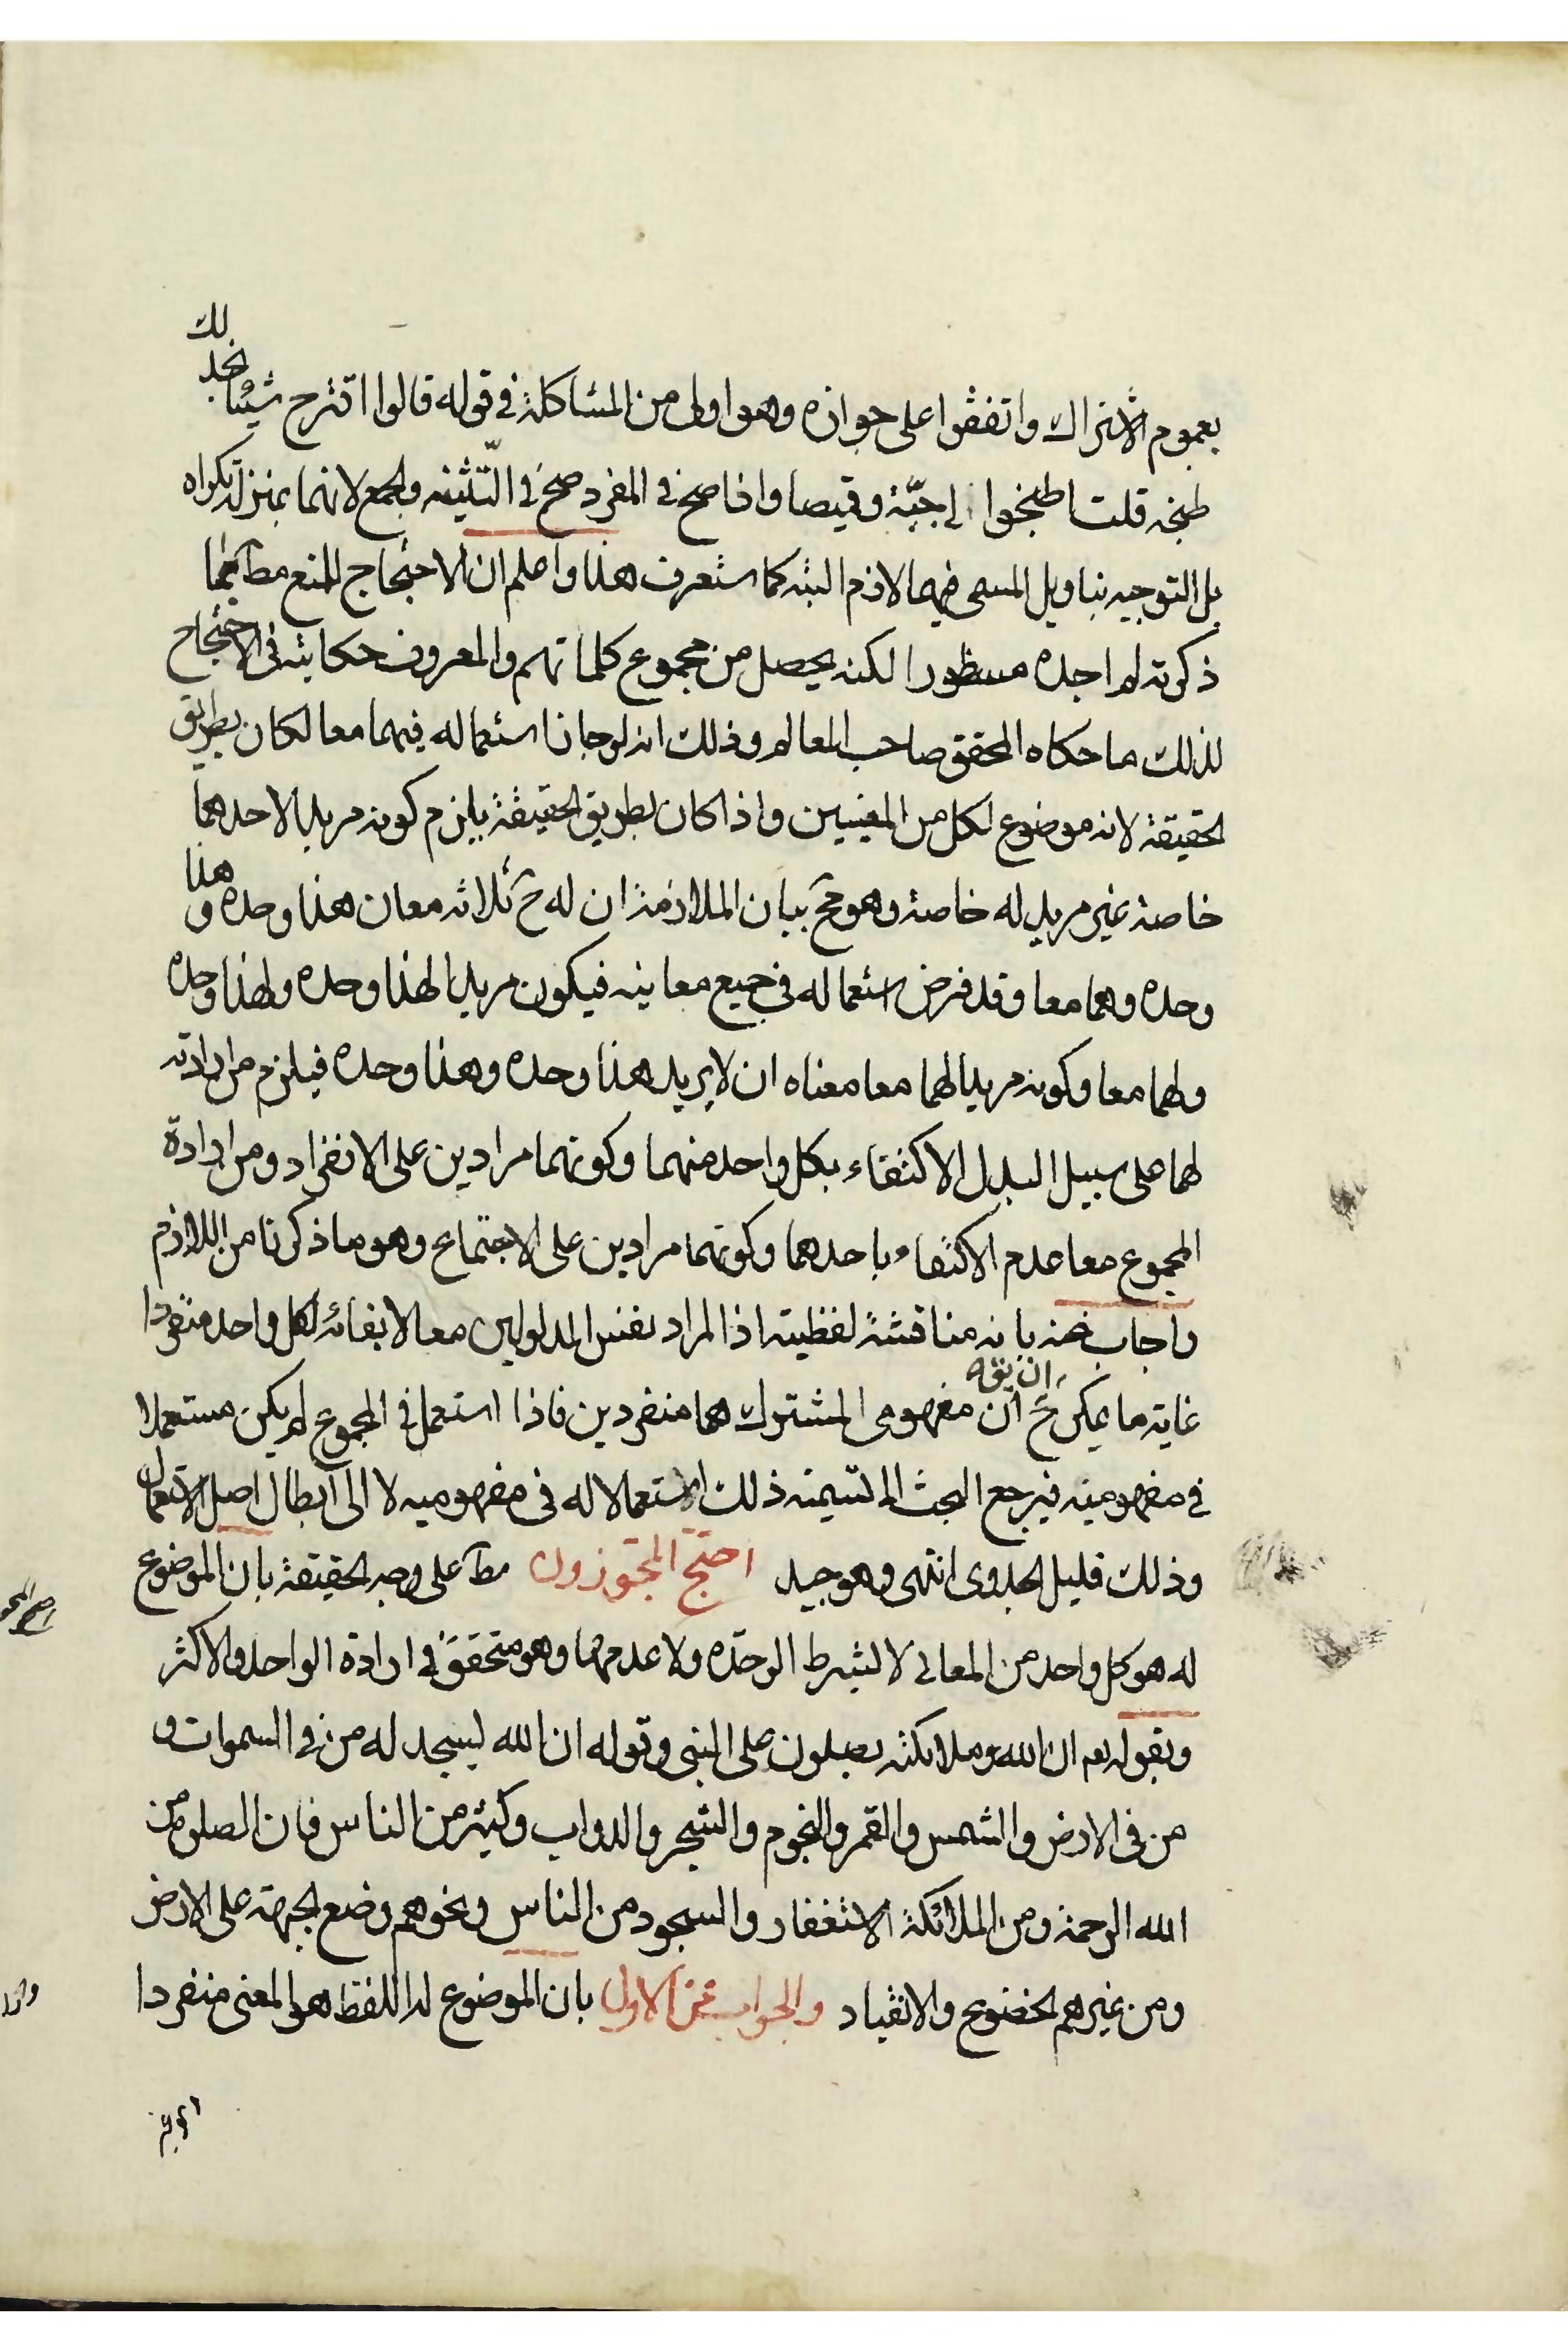 بعموم الاشتراك واتفقوا على جوازه وهو اولى من المشاكلة في قوله قالوا اقترح شيئا نجد لك
طبخه قلت اطبخوا لي جبّة وقميصا واذا صح في المفرد صح في التّثنيه والجمع لانهما بمنزلة تكراره
بل التوجيه بتاويل المسمى فيهما لازم البته كما ستعرف هذا واعلم ان الاحتجاج للمنع مط كما
ذكرته لم اجده مسطورا لكنه يحصل من مجموع كلماتهم والمعروف حكايته في الاحتجاج
لذلك ما حكاه المحقق صاحب المعالم وذلك انه لو جاز استعماله فيهما معا لكان بطريق
الحقيقة لانه موضوع لكل من المعنيين واذا كان بطريق الحقيقة يلزم كونه مريدا لاحدهما
خاصة غير مريد له خاصة وهو مح بيان الملازمة ان له ح ثلاثه معان هذا وحده وهذا
وحده وهما معا وقد فرض استعماله في جميع معانيه فيكون مريدا لهذا وحده ولهذا وحده
ولهما معا وكونه مريدا لهما معا معناه ان لا يريد هذا وحده وهذا وحده فيلزم من ارادته
لهما على سبيل البدل الاكتفاء بكل واحد منهما وكونهما مرادين على الانفراد ومن ارادة
المجموع معا عدم الاكتفاء باحدهما وكونهما مرادين على الاجتماع وهو ما ذكرنا من اللازم
واجاب عنه بانه مناقشة لفظيته اذ المراد نفس المدلولين معا لا بقائه لكل واحد منفردا
غاية ما يمكن ح ان يقه ان مفهومي المشترك هما منفردين فاذا استعمل في المجموع لم يكن مستعملا
في مفهوميه فيرجع البحث الى تسيمته ذلك الاستعمالا له في مفهوميه لا الى ابطال اصل الاستعمال
وذلك قليل الجدوى انتهى وهو جيد احتجّ المجّوزون مط على وجه الحقيقة بان الموضوع
له هو كل واحد من المعاني لا لشرط الوحده ولا عدمها وهو متحقق في ارادة الواحد والاكثر
وبقوله تعم ان الله وملائكته يصلون على النبى وقوله ان الله ليسجد له من في السموات و
من في الارض والشمس والقمر والنجوم والشجر والدواب وكثير من الناس فان الصلوة من
الله الرحمة ومن الملائكة الاستغفار والسجود من الناس ونحوهم وضع الجبهة على الارض
ومن غيرهم الخضوع والانقياد والجواب عن الاول بان الموضوع له اللفظ هو المعنى منفردا